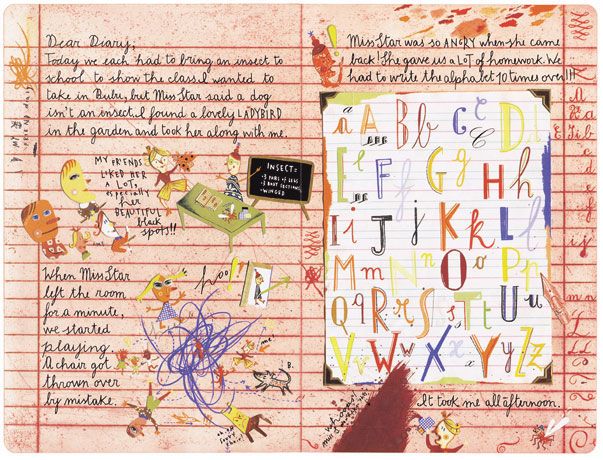 Dear Diary,
Today we each had to bring an insect to
school to show the class. I wanted to
take in Bubu, but Miss Star said a dog
isn't an insect. I found a lovely LADYBIRD
in the garden and took her along with me.
MY FRIENDS
LIKED HER
A LOT,
especially
her
BEAUTIFUL
black
spots!!
INSECT=
-3 PAIRS of LEGS
-3 BODY SECTIONS
-WINGED
When Miss Star
left the room
for a minute,
we started
playing.
A chair got
thrown over
by mistake.
me
B.
Miss Star was so ANGRY when she came
back! She gave us a LOT of homework. We
had to write the alphabet 10 times over!!!
a A B b C c D d
E e F f G g H h
I i J j K k L l
M m N n O o P p
Q q R r S s T t U u
V v W w X x Y y Z z
whoops!
It took me all afternoon.